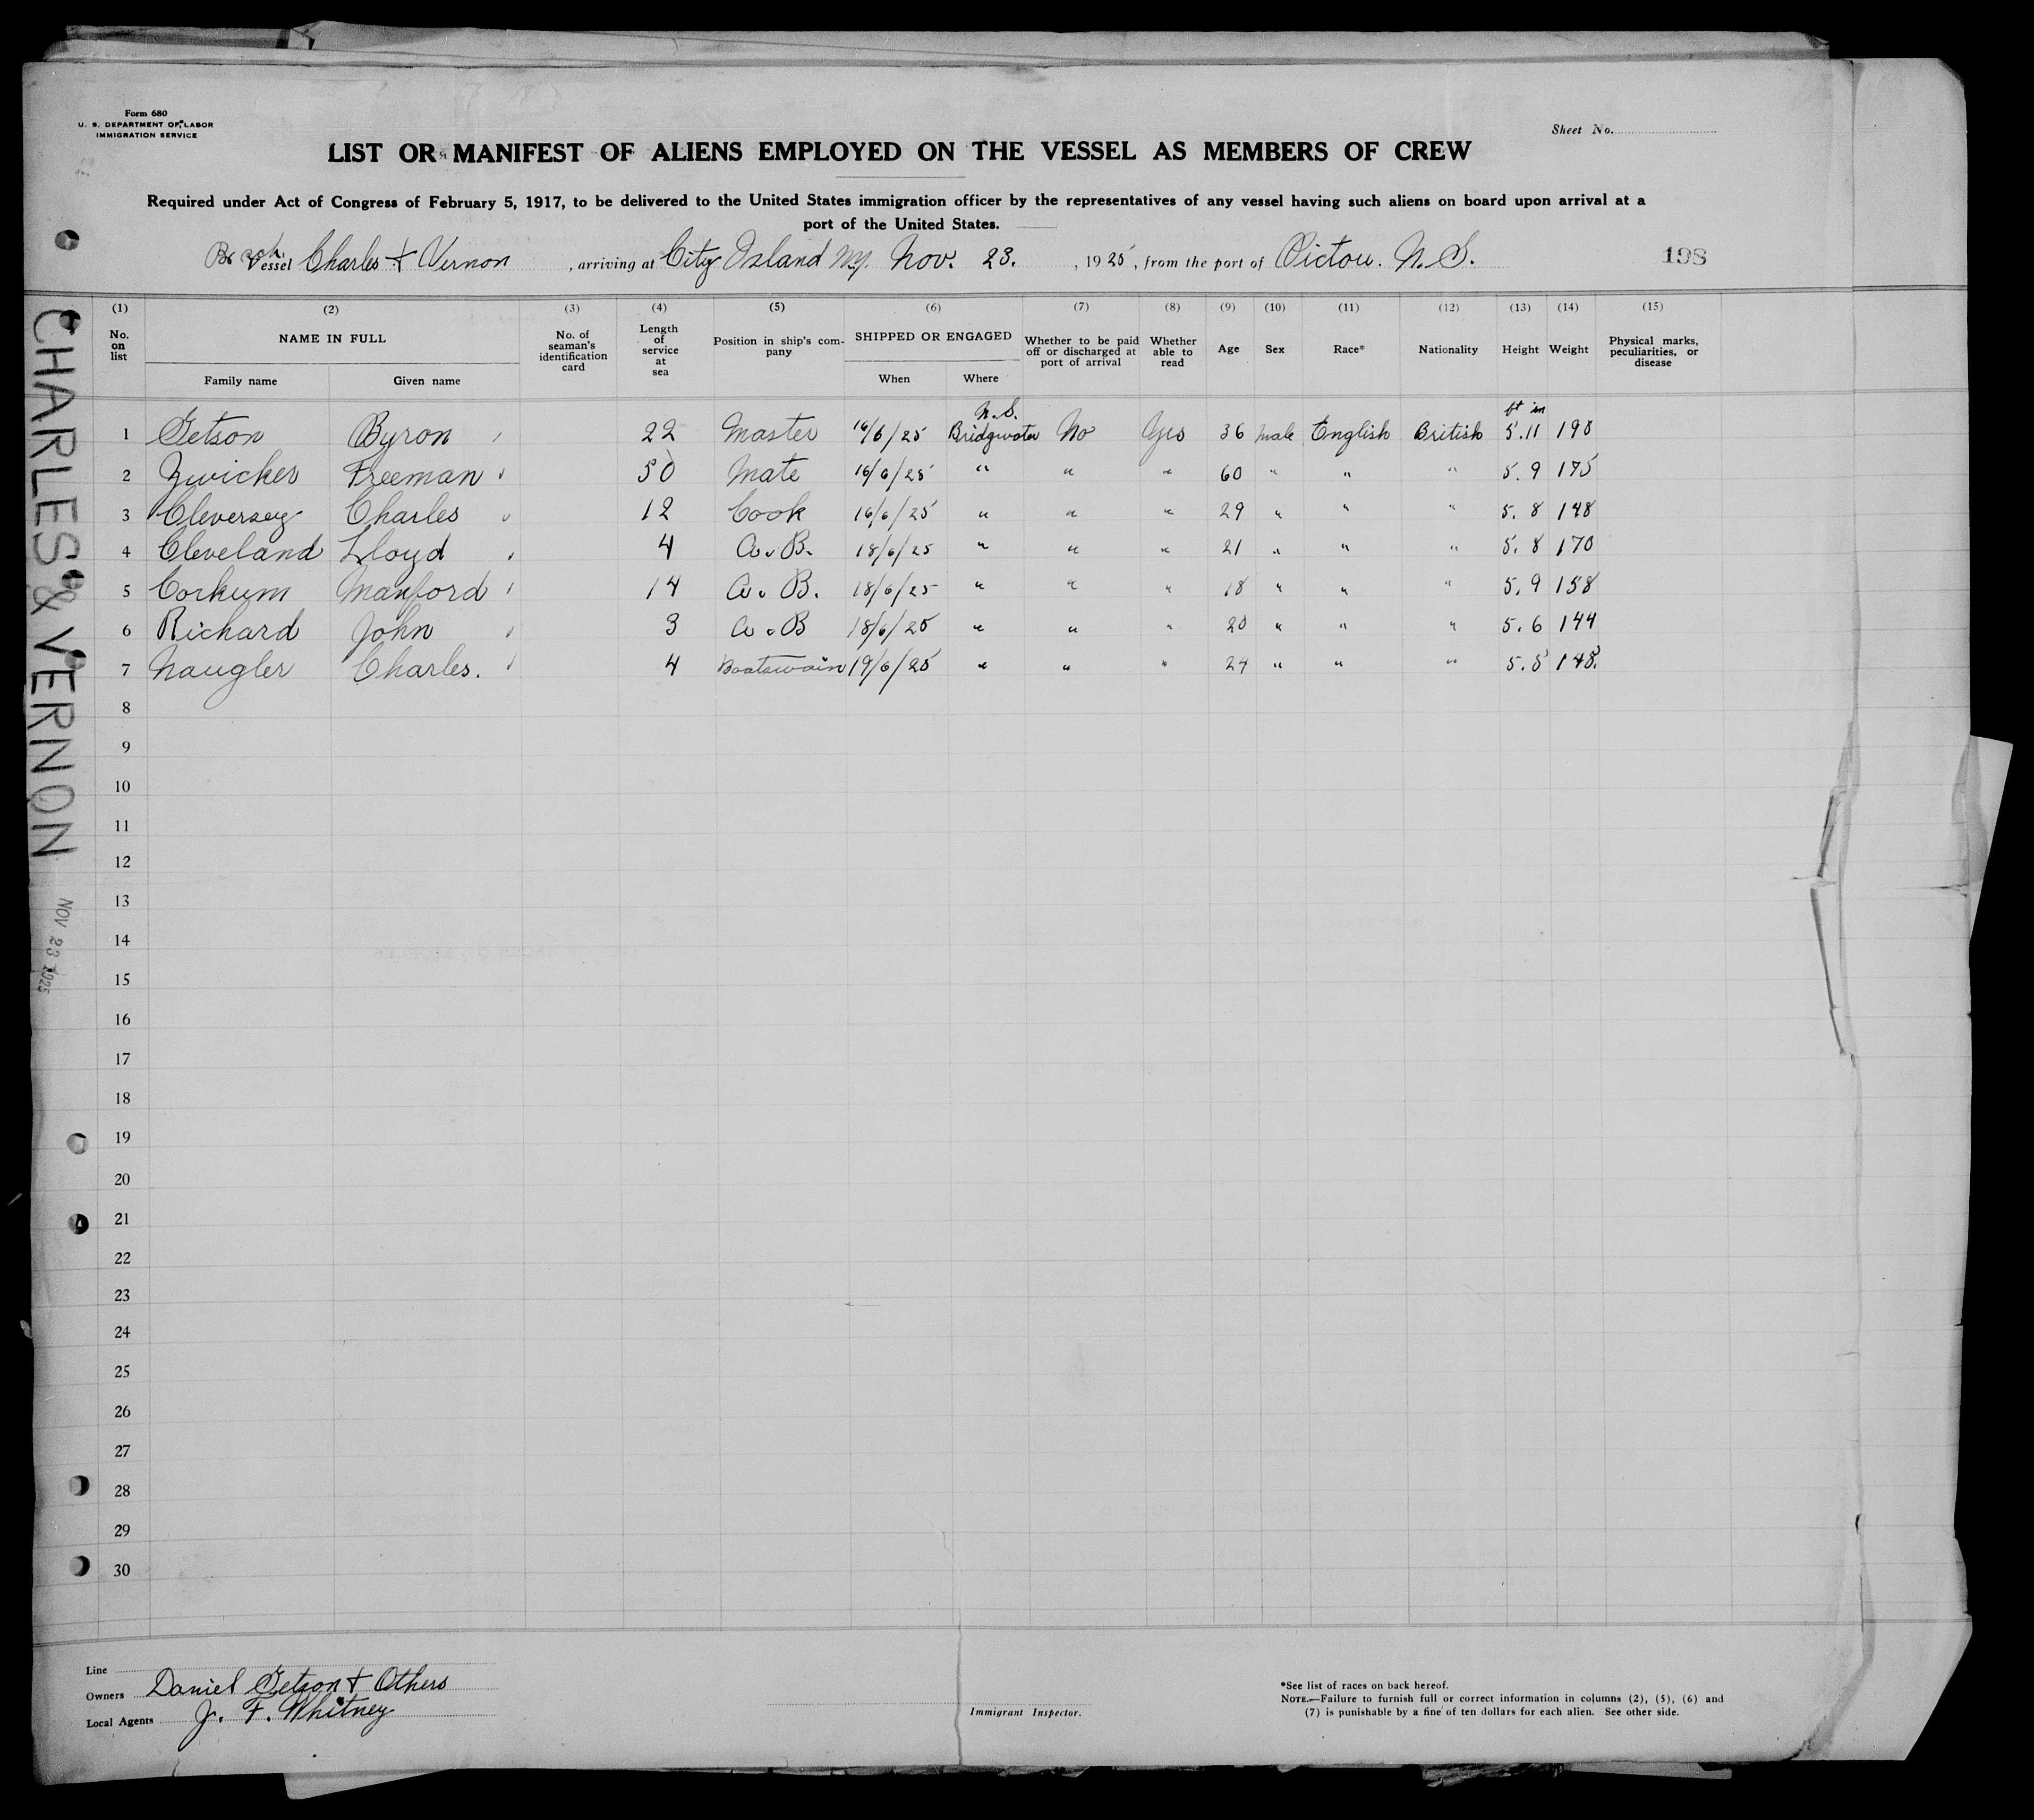 Form 680
U. S. DEPARTMENT OF LABOR
IMMIGRATION SERVICE
Sheet No.
LIST OR MANIFEST OF ALIENS EMPLOYED ON THE VESSEL AS MEMBERS OF CREW
Required under Act of Congress of February 5, 1917, to be delivered to the United States immigration officer by the representatives of any vessel having such aliens on board upon arrival at a
port of the United States.
Vessel Charles & Vernon, arriving at City Island N.Y. Nov. 23., 1925, from the port of Pictou. N.S. 198
(1) (2) (3) (4) (5) (6) (7) (8) (9) (10) (11) (12) (13) (14) (15)
No. on list NAME IN FULL Family name Given name No. of seaman's identification card Length of service at sea Position in ship's company SHIPPED OR ENGAGED When Where Whether to be paid off or discharged at port of arrival Whether able to read Age Sex Race* Nationality Height Weight Physical marks, peculiarities, or disease
N.S. ft in
1 Getson Byron 22 Master 16/6/25 Bridgwater No Yes 36 male English British 5.11 190
2 Zwicker Freeman 50 Mate 16/6/25 " " " 60 " " " 5.9 175
3 Cleversey Charles 12 Cook 16/6/25 " " " 29 " " " 5.8 148
4 Cleveland Lloyd 4 A.B. 18/6/25 " " " 21 " " " 5.8 170
5 Corkum Manford 14 A.B. 18/6/25 " " " 18 " " " 5.9 158
6 Richard John 3 A.B 18/6/25 " " " 20 " " " 5.6 144
7 Naugler Charles. 4 Boatswain 19/6/25 " " " 24 " " " 5.5 148.
8
9
10
11
12
13
14
15
16
17
18
19
20
21
22
23
24
25
26
27
28
29
30
CHARLES & VERNON
NOV 23 1925
Line
Owners Daniel Getson & Others
Local Agents J. F. Whitney
Immigrant Inspector.
*See list of races on back hereof.
NOTE.—Failure to furnish full or correct information in columns (2), (5), (6) and
(7) is punishable by a fine of ten dollars for each alien. See other side.